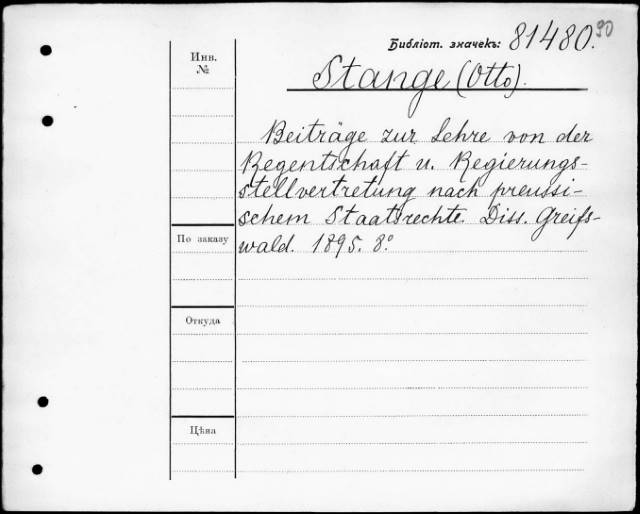 Библіот. значекъ: 81480.90
Инв.
№
Stange (Otto).
Beiträge zur Lehre von der
Regentschaft u. Regierungs-
stellvertretung nach preussi-
schem Staatsrechte. Diss. Greifs-
wald. 1895. 8°
По заказу
Откуда
Цѣна